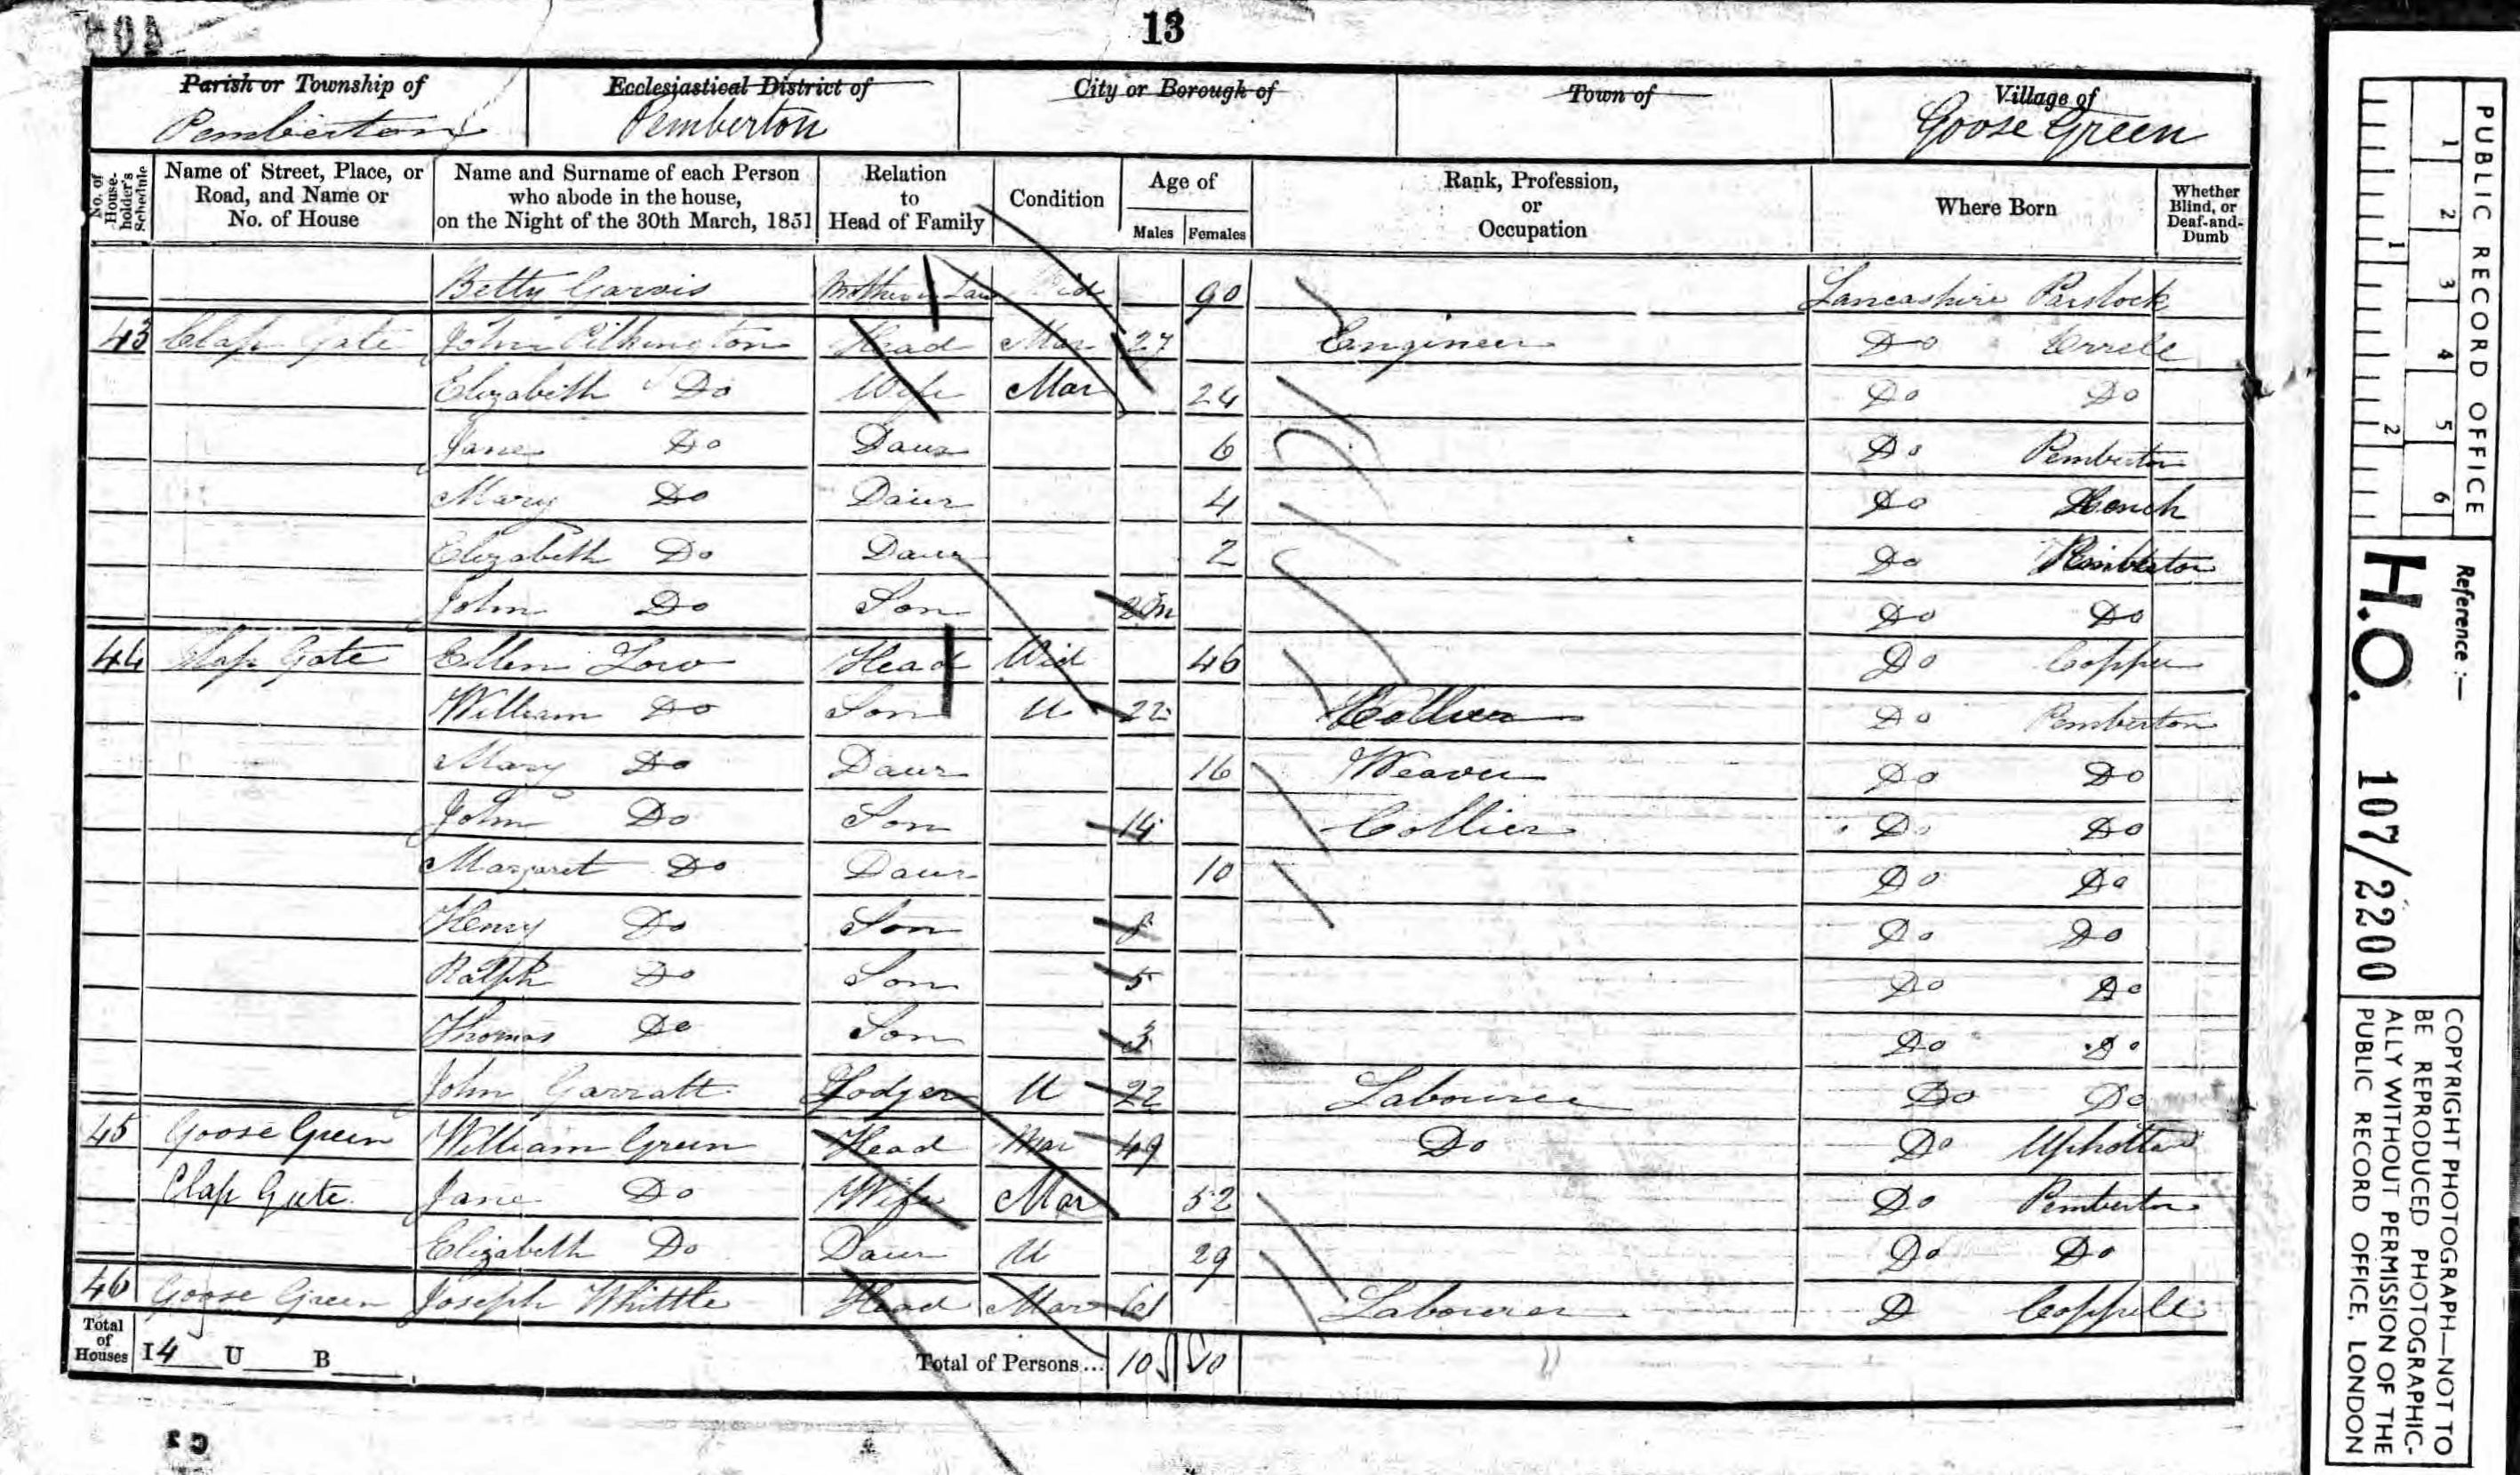 13
Parish or Township of Pemberton
Ecclesiastical District of Pemberton
City or Borough of
Town of
Village of Goose Green
No. of House-holder's Schedule
Name of Street, Place, or Road, and Name or No. of House
Name and Surname of each Person who abode in the house, on the Night of the 30th March, 1851
Relation to Head of Family
Condition
Age of Males Females
Rank, Profession, or Occupation
Where Born
Whether Blind, or Deaf-and-Dumb
Betty Garvis Mother in Law Wid 90 Lancashire
43 Clap Gate John Pilkington Head Mar 27 Engineer Do
Elizabeth Do Wife Mar 24 Do Do
Jane Do Daur 6 Do Pemberton
Mary Do Daur 4 Do
Elizabeth Do Daur 2 Do Pemberton
John Do Son Do Do
44 Clap Gate Ellen Low Head Wid 46 Do
William Do Son U 22 Collier Do Pemberton
Mary Do Daur 16 Weaver Do Do
John Do Son 14 Collier Do Do
Margaret Do Daur 10 Do Do
Henry Do Son 8 Do Do
Ralph Do Son 5 Do Do
Thomas Do Son 3 Do Do
John Garratt Lodger U 22 Labourer Do Do
45 Goose Green William Green Head Mar 49 Do Do
Clap Gate Jane Do Wife Mar 52 Do Pemberton
Elizabeth Do Daur U 29 Do Do
46 Goose Green Joseph Whittle Head Mar 61 Labourer D Coppell
Total of Houses I 4 U B
Total of Persons... 10 10
PUBLIC RECORD OFFICE
1 2 3 4 5 6
1 2
Reference :-
H.O. 107/2200
COPYRIGHT PHOTOGRAPH—NOT TO
BE REPRODUCED PHOTOGRAPHIC-
ALLY WITHOUT PERMISSION OF THE
PUBLIC RECORD OFFICE, LONDON